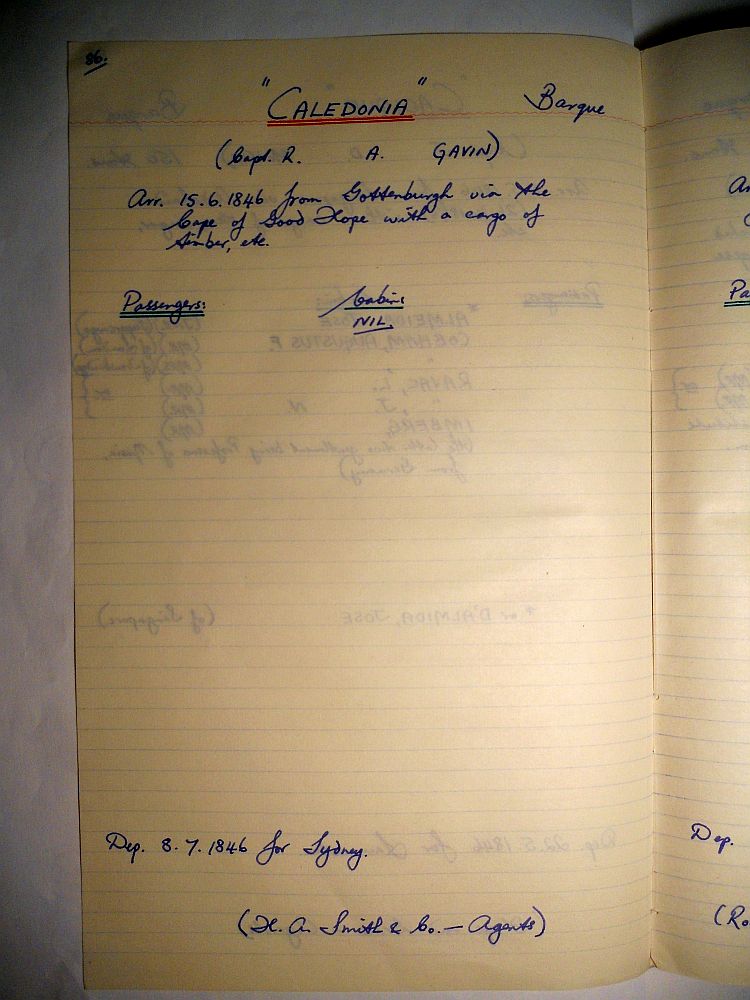 86.
"CALEDONIA" Barque
(Capt. R. A. GAVIN)
Arr. 15.6.1846 from Gottenburgh via the
Cape of Good Hope with a cargo of
timber, etc.
Passengers: Cabin:
NIL.
Dep. 8.7.1846 for Sydney.
(H. A. Smith & Co. — Agents)
Ar
Pa
Dep.
(Ro